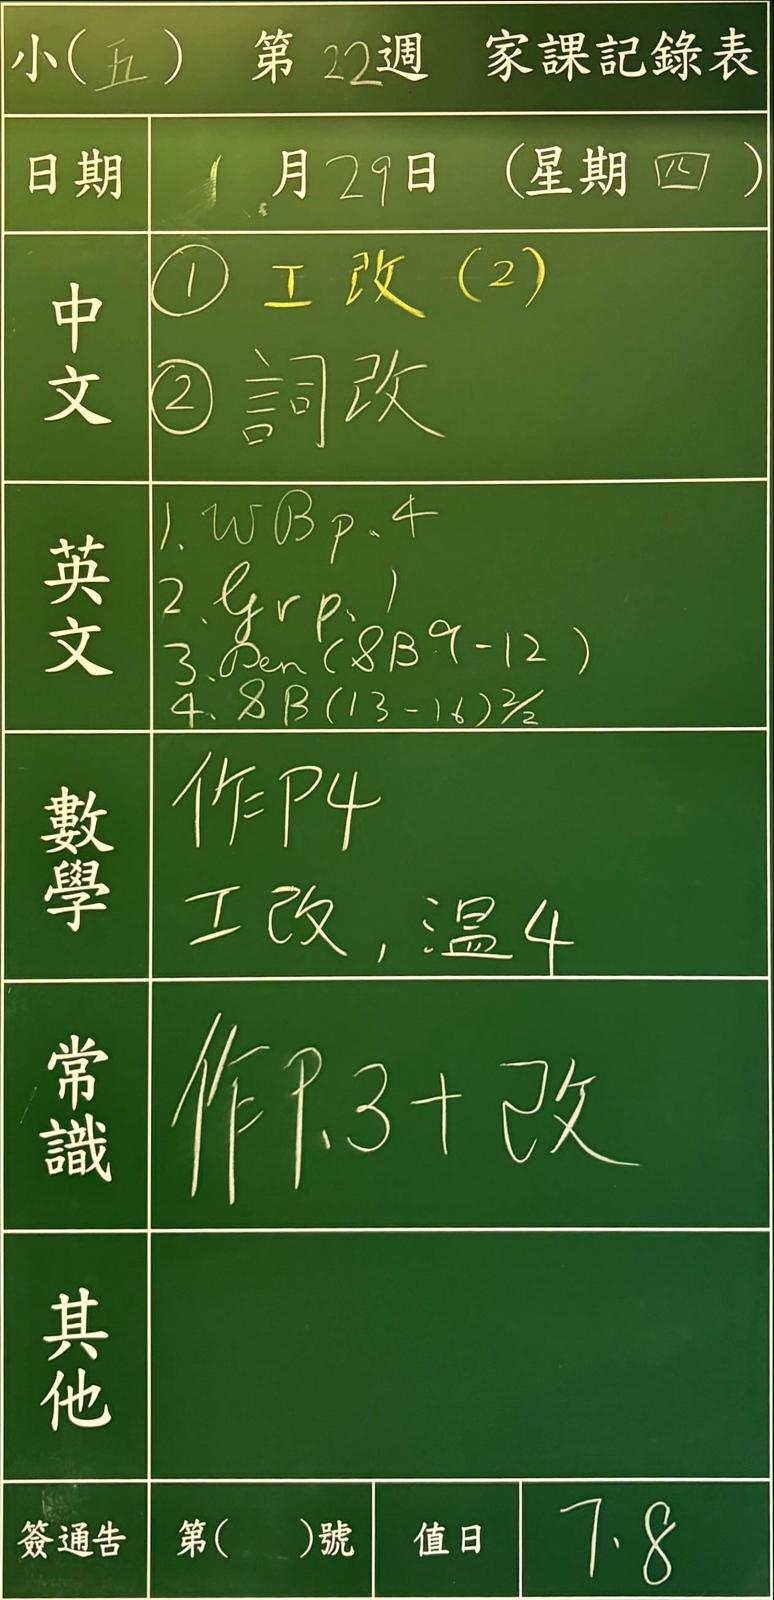 小(五) 第22週 家課記錄表
日期 1月29日 (星期四)
中文
① 工改 (2)
② 詞改
英文
1. WB p.4
2. Gr p.1
3. Pen (SB 9-12)
4. SB (13-16) 2/2
數學
作P4
工改, 溫4
常識
作P.3+改
其他
簽通告 第( )號 值日 7.8